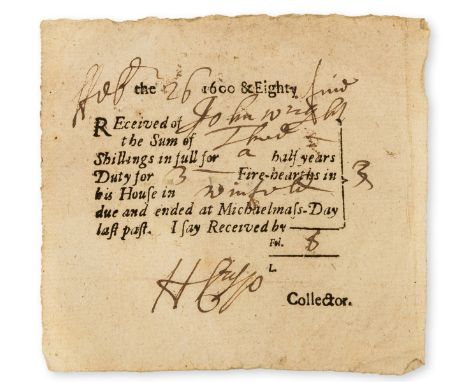 Feb the 26 1600 & Eighty
REceived of John Wright
the Sum of Three
Shillings in full for a half years
Duty for 3 Fire-hearths in 3
his House in
due and ended at Michaelmass-Day
last past. I say Received by
L.
Collector.